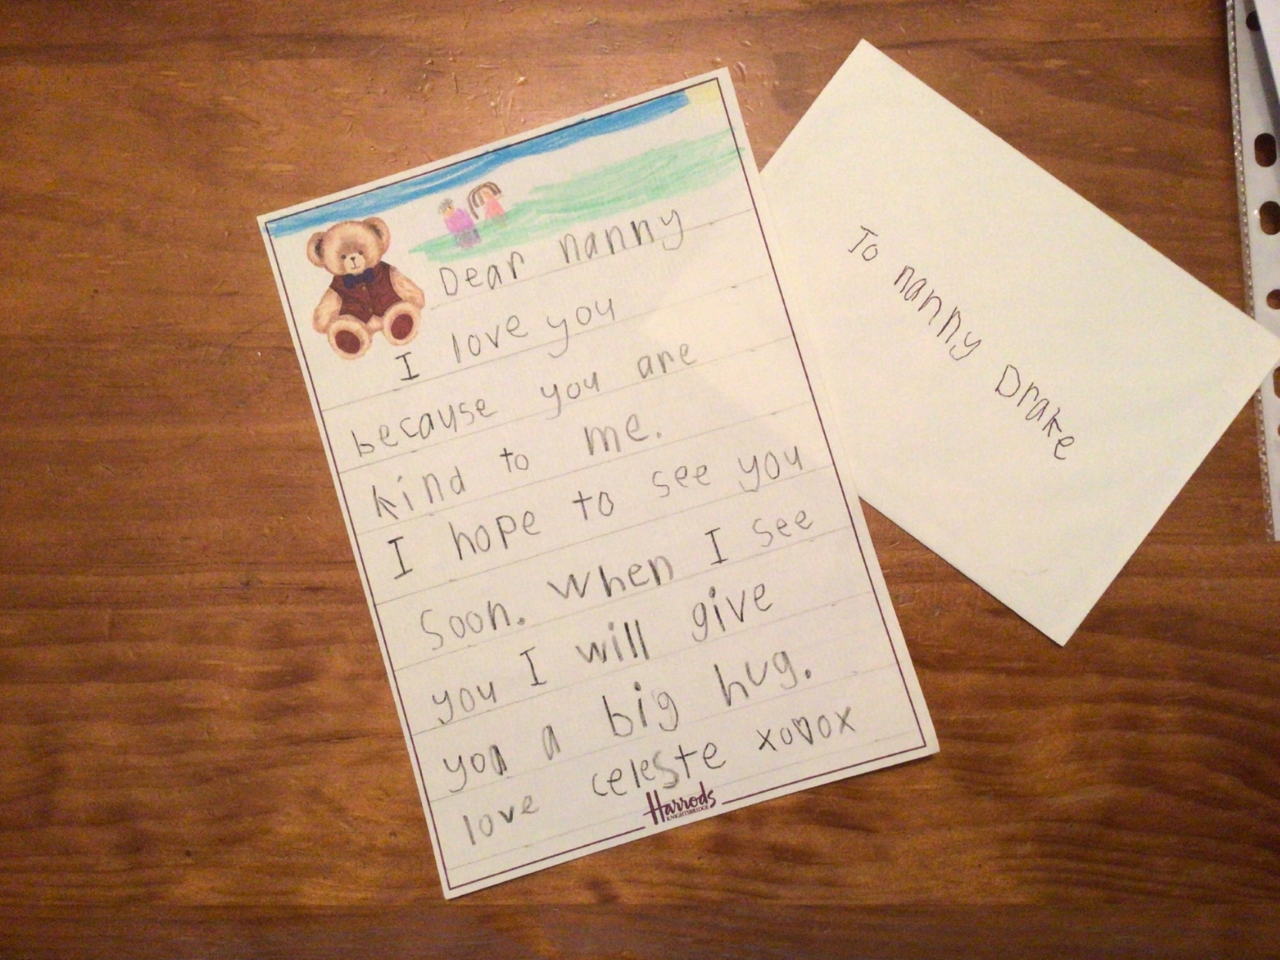 Dear nanny
I love you
because you are
kind to me.
I hope to see you
Soon. When I see
you I will give
you a big hug.
love celeste xo♡ox
Harrods
KNIGHTSBRIDGE
To nanny Drake